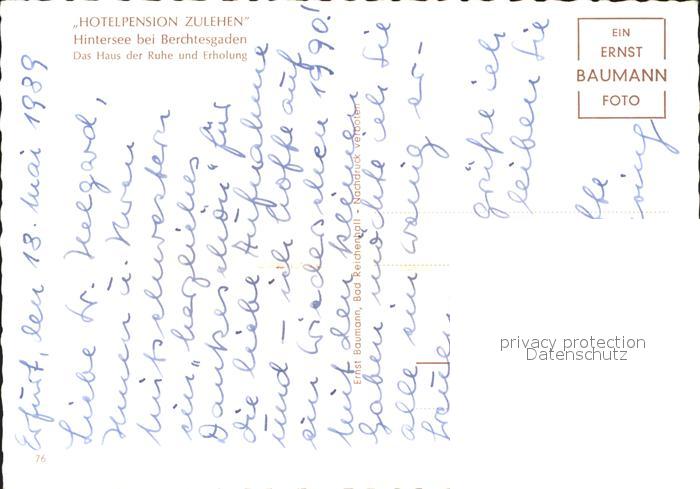 „HOTELPENSION ZULEHEN"
Hintersee bei Berchtesgaden
Das Haus der Ruhe und Erholung
EIN
ERNST
BAUMANN
FOTO
Erfurt, den 13. Mai 1989
Liebe Sr. Helgard,
Ihnen u. Ihren
Mitschwestern
ein „herzliches
Dankeschön" für
die liebe Aufnahme
und – ich hoffe auf
ein Wiedersehen 1990!
Mit den kleinen
Gaben möchte ich Sie
alle ein wenig er-
freuen.
grüße ich
bleiben Sie
Ernst Baumann, Bad Reichenhall - Nachdruck verboten
privacy protection
Datenschutz
76